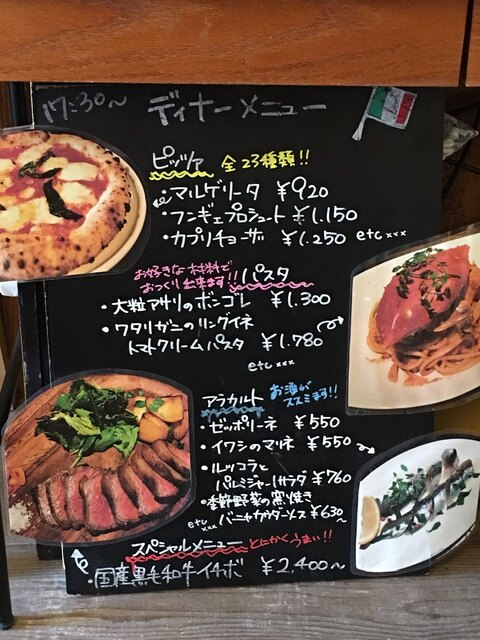 17:30〜 ディナーメニュー
ピッツァ 全23種類!!
・マルゲリータ ¥920
・フンギェプロシュート ¥1.150
・カプリチョーザ ¥1.250 etc xxx
お好きな材料で
おつくり出来ます!! パスタ
・大粒アサリのボンゴレ ¥1.300
・ワタリガニのリングイネ
トマトクリームパスタ ¥1.780
etc xxx
アラカルト お酒が
ススミます!!
・ゼッポリーネ ¥550
・イワシのマリネ ¥550
・ルッコラと
パルミジャーノサラダ ¥760
・季節野菜の窯焼き
etc xxx バーニャカウダソース ¥630〜
スペシャルメニュー とにかくうまい!!
・国産黒毛和牛イチボ ¥2,400〜